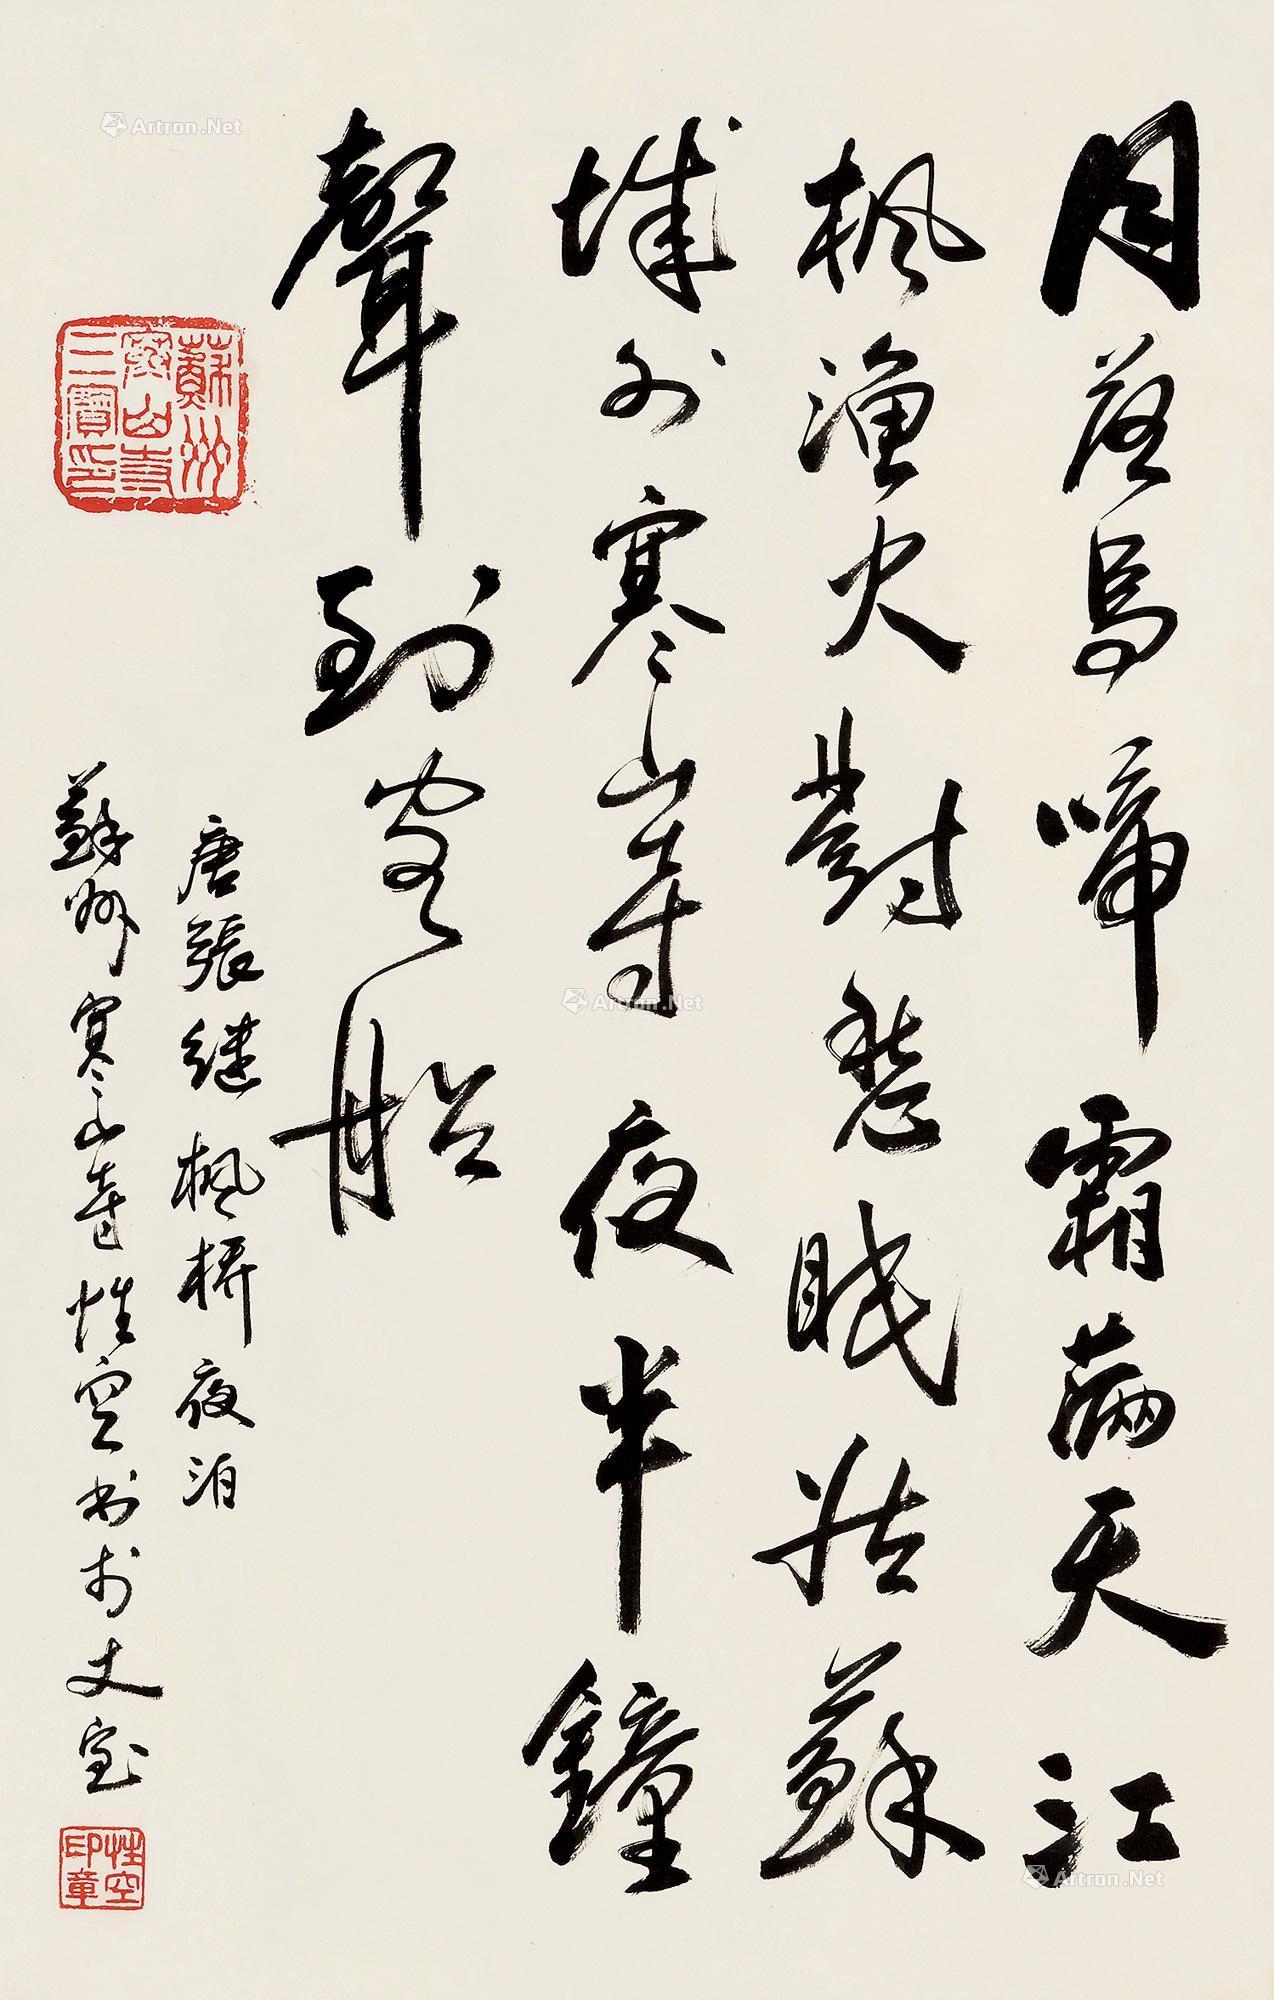 月落烏啼霜滿天江
楓漁火對愁眠姑蘇
城外寒山寺夜半鐘
聲到客船
唐張继楓橋夜泊
蘇州寒山寺性空书於丈室
蘇州寒山寺三寶印
性空印章
Artron.Net
Artron.Net
Artron.Net